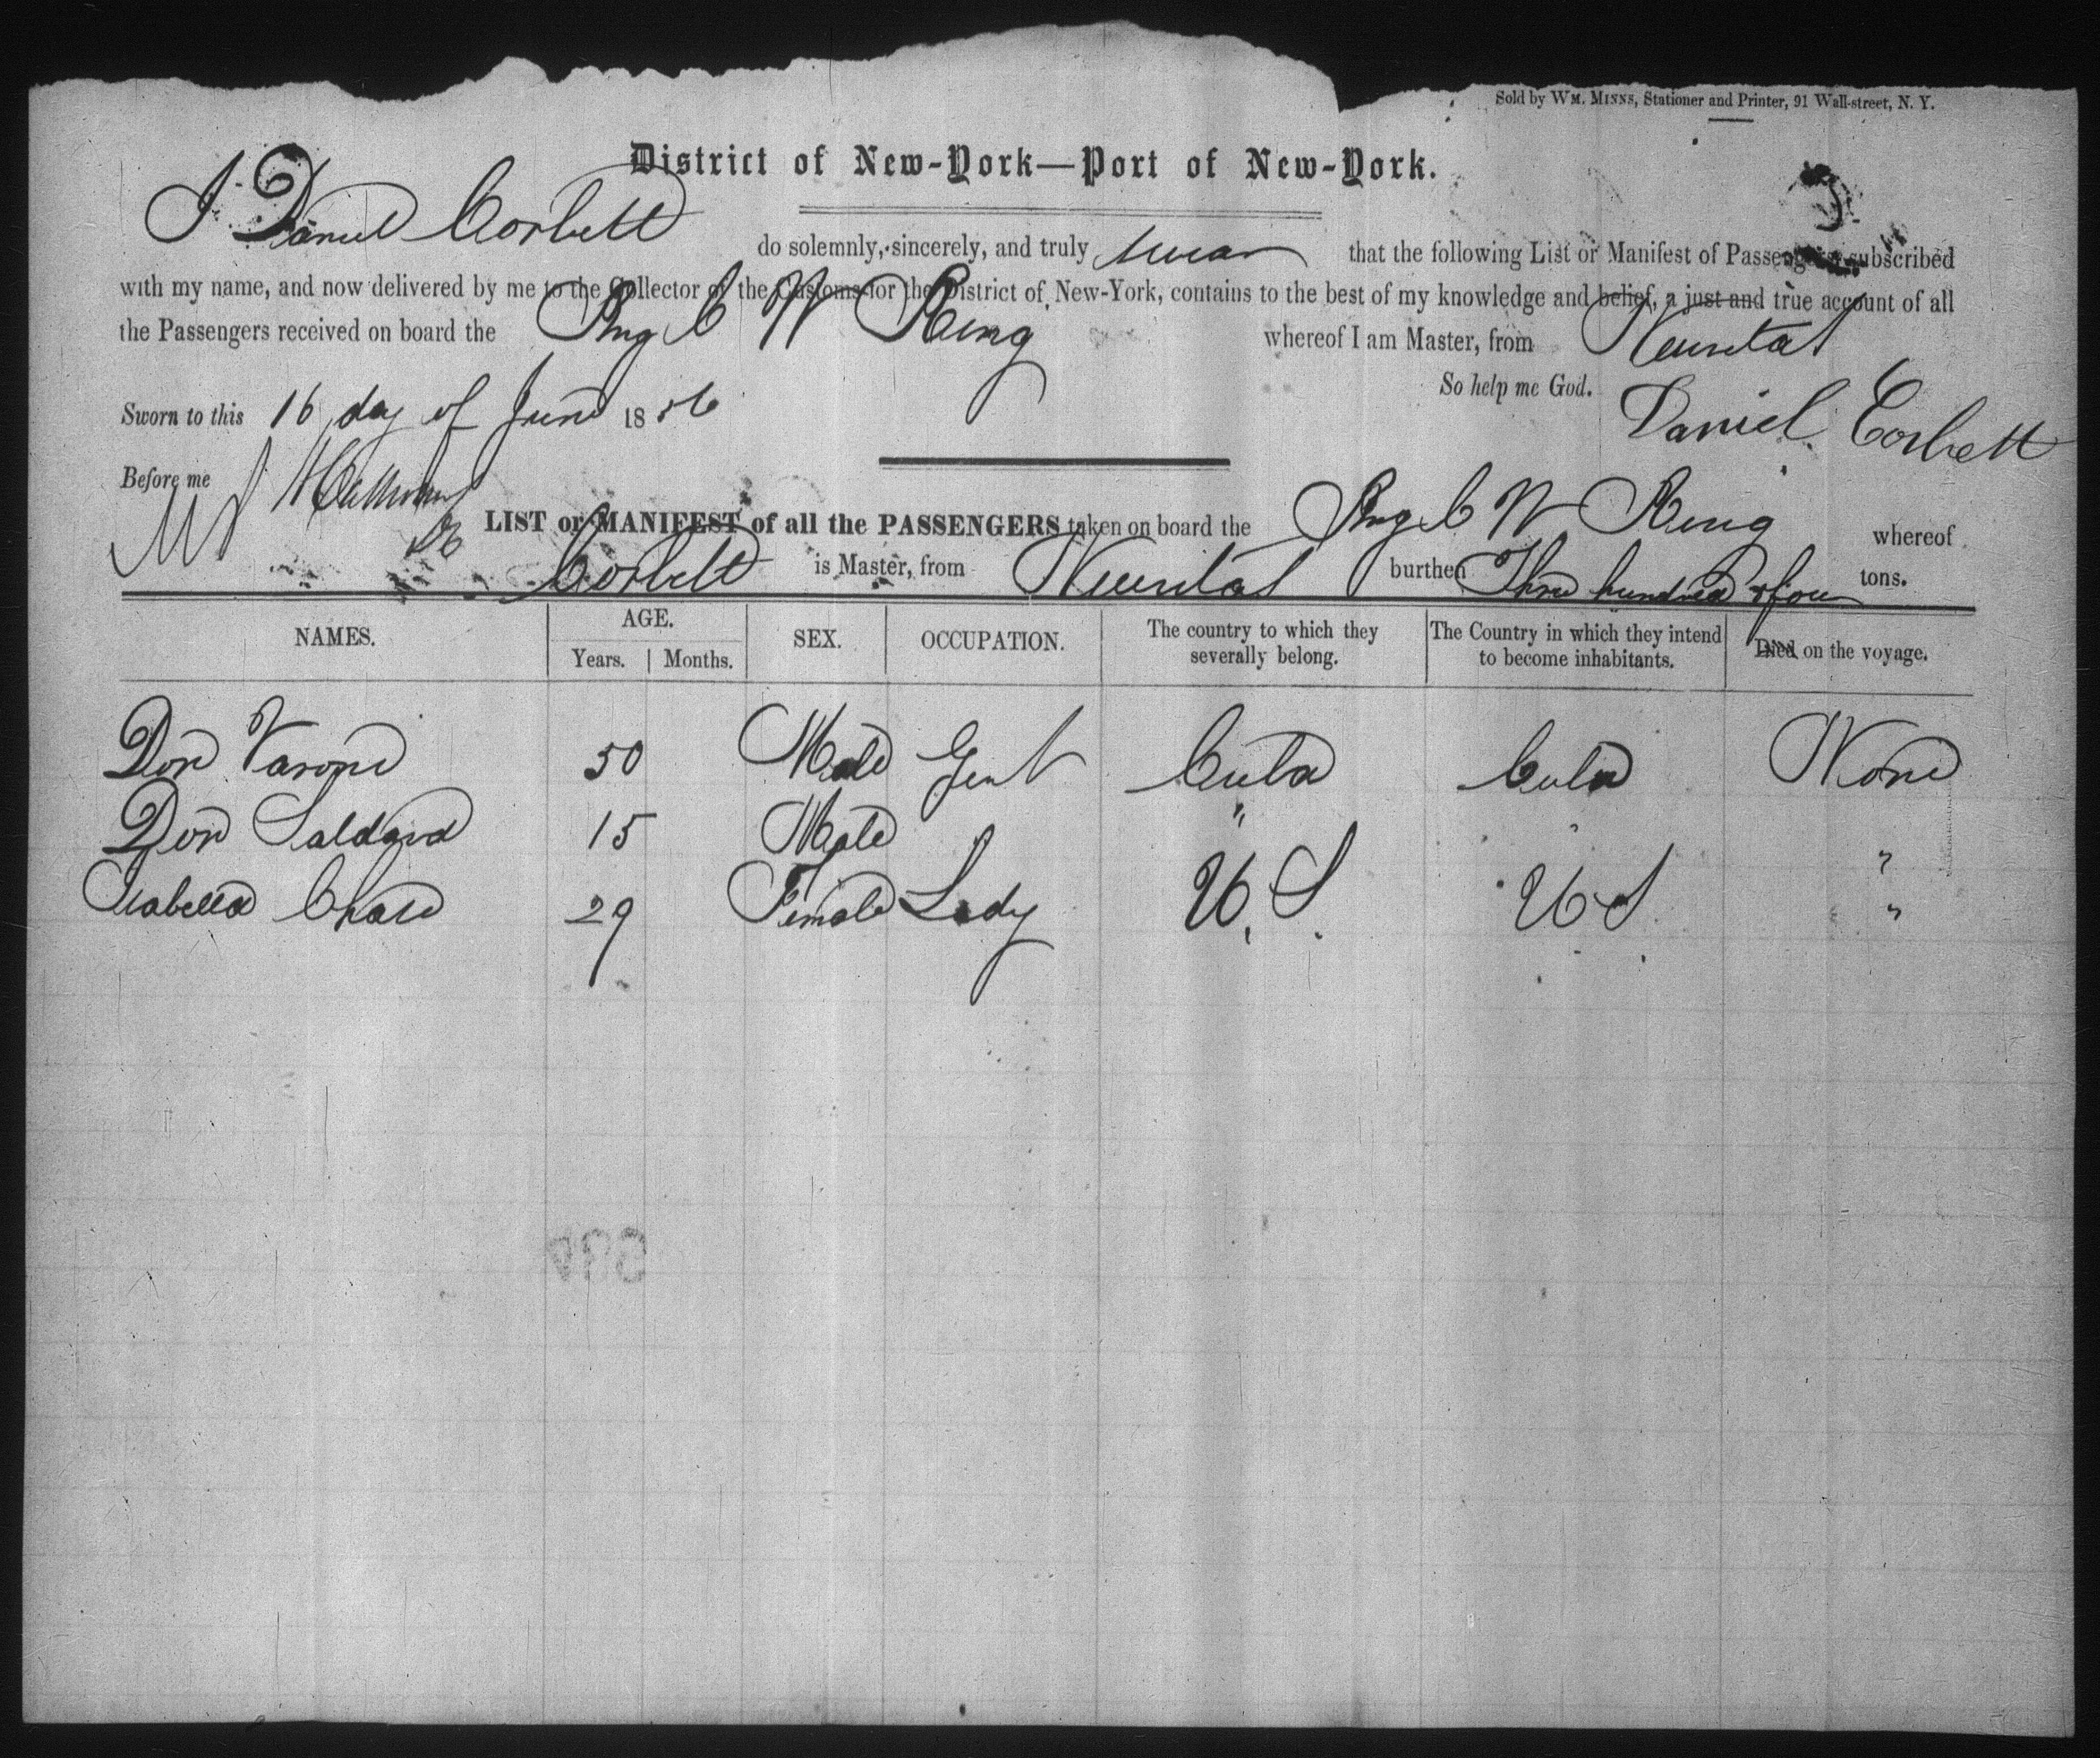 Sold by WM. MINNS, Stationer and Printer, 91 Wall-street, N. Y.
District of New-York—Port of New-York.
I Daniel Corbett do solemnly, sincerely, and truly swear that the following List or Manifest of Passengers subscribed
with my name, and now delivered by me to the Collector of the Customs for the District of New-York, contains to the best of my knowledge and belief, a just and true account of all
the Passengers received on board the Brig C W Ring whereof I am Master, from Neuvitas
So help me God.
Sworn to this 16 day of June 1856
Daniel Corbett
Before me
LIST or MANIFEST of all the PASSENGERS taken on board the Brig C W Ring whereof
Corbett is Master, from Neuvitas burthen Three hundred & four tons.
NAMES. AGE. Years. Months. SEX. OCCUPATION. The country to which they severally belong. The Country in which they intend to become inhabitants. Died on the voyage.
Don Varona 50 Male Gent Cuba Cuba None
Don 15 Male " " "
Isabella Chase 29 Female Lady U. S. U S "